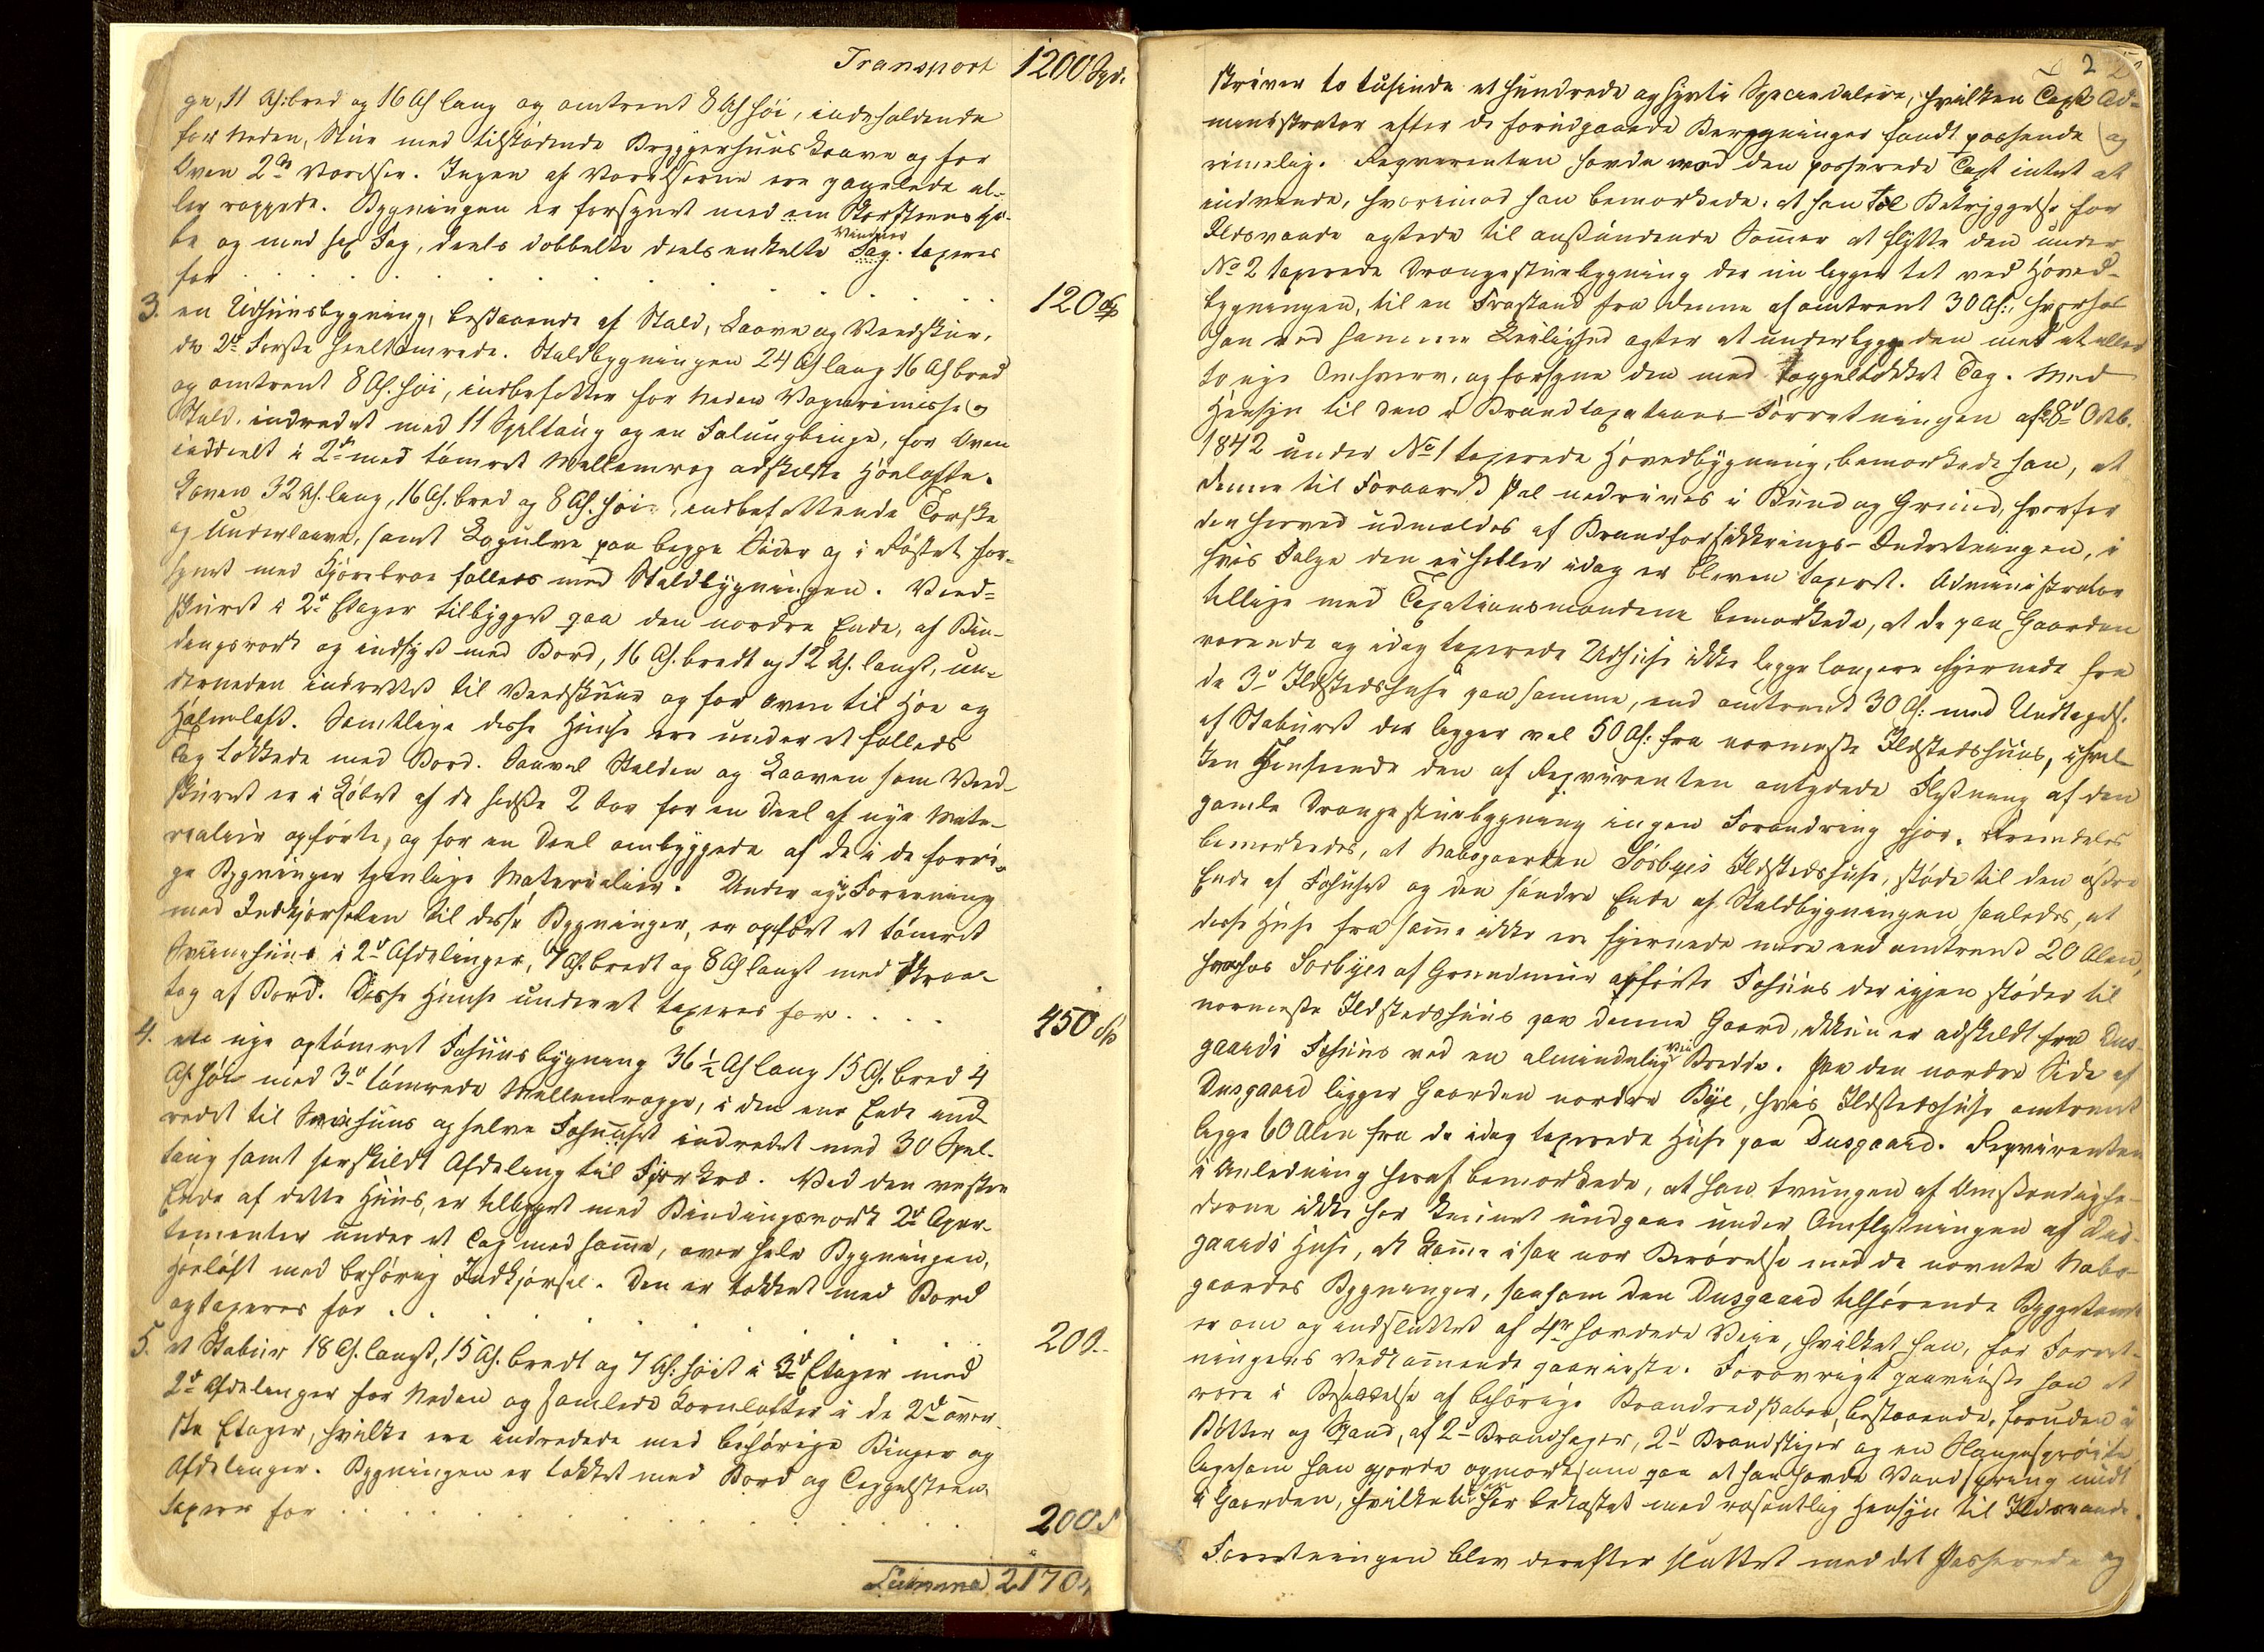 Transport 1200 Spd.
ge, 11 Al: bred og 16 Al lang og omtrent 8 Al høi, indeholdende
for Neden, Stue med tilstødende Bryggerhuus Kaave og for
Oven 2de Værelser. Ingen af Værelserne ere panelede el-
ler rappede. Bygningen er forsynet med een Skorsteens Pi-
be og med sex Fag, deels dobbelte deels enkelte Vinduer Fag. taxeres
for . . . . . . . . 120
3. en Udhuusbygning, bestaaende af Stald, Laave og Vedskuur,
de 2de Første heeltømrede. Staldbygningen 24 Al lang 16 Al bred
og omtrent 8 Al. høi, indbefatter for Neden Vognremisse og
Stald, indredet med 11 Spiltaug og en Folungbinge, for Oven
inddeelt i 2de med tømret Mellemvæg adskildte Høelofte.
Laaven 32 Al. lang, 16 Al. bred og 8 Al. høi, indbefattende Tørske
og Underlaave, samt Lagulve paa begge Sider og i Røstet for-
synet med Kjørebroe fælleds med Staldbygningen. Ved-
skuret i 2de Etager tilbygget paa den nordre Ende, af Bin-
dingsværk og indhyst med Bord, 16 Al. bredt og 12 Al. langt, un-
derneden indrettet til Vedskuur og for oven til Høe og
Halmlaft. Samtlige disse Huuse ere under et fælleds
Tag tækkede med Bord. Saavel Stalden og Laaven som Ved-
skuret er i Løbet af de sidste 2 Aar for en Deel af nye Mate-
rialier opførte, og for en Deel ombyggede af de i de forri-
ge Bygninger tjenlige Materialier. Under og i Forening
med Indkjørselen til disse Bygninger, er opført et tømret
Sviinehuus i 2de Afdelinger, 7 Al. bredt og 8 Al langt med Skraa-
tag af Bord. Disse Huuse underet taxeres for . . . . 450
4. ete nye optømret Fæhuusbygning 36 ½ Al lang 15 Al. bred 4
Al. høi med 3de tømrede Mellemvægge, i den ene Ende ind-
redet til Sviinhuus og selve Fæhuuset indredet med 30 Spil-
taug samt særskildt Afdeling til Fjærkræ. Ved den vestre
Ende af dette Huus, er tilbygget med Bindingsværk 2de Apar-
tementer under et Tag med samme, over hele Bygningen,
Høeloft med behørig Indkjørsel. Den er tækket med Bord
og taxeres for . . . . . . . 200.
5. et Stabuur 18 Al. langt, 15 Al. bredt og 7 Al. høit i 3de Etager med
2de Afdelinger for Neden og samlede Kornlofter i de 2de øver-
ste Etager, hvilke ere indredede med behørige Binger og
Afdelinger. Bygningen er tækket med Bord og Teggelsteen.
taxeres for . . . . . . . . 200
Summa 2170
skriver to tusinde et hundrede og syvti Speciedalere, hvilken Taxt Ad-
ministrator efter de foregaaende Beregninger fandt passende og
rimelig. Reqvirenten havde mod den passerede Taxt intet at
indvende, hvorimod han bemærkede: at han til Betryggelse for
Ildsvaade agtede til anstundende Sommer at flytte den under
No 2 taxerede Drængestuebygning der nu ligger tet ved Hoved-
bygningen, til en Frastand fra denne af omtrent 30 Al:, hvorhos
han ved samme Leilighed agter at underbygge den med et eller
to nye Omhverv, og forsyne den med teggeltækket Tag. Med
Hensyn til den i Brandtaxations-Forretningen af 28de Octb.
1842 under No 1 taxerede Hovedbygning, bemærkede han, at
denne til Foraaret skal nedrives i Bund og Grund, hvorfor
den herved udmeldes af Brandforsikkrings-Indretningen, i
hvis Følge den ei heller idag er bleven taxeret. Administrator
tillige med Taxationsmændene bemærkede, at de paa Gaarden
værende og idag taxerede Udhuse ikke ligge længere fjernede fra
de 3de Ildstedshuse paa samme, end omtrent 30 Al: med Undtagelse
af Staburet der ligger vel 50 Al: fra nærmeste Ildstedshuus, i hvil-
ken Henseende den af Reqvirenten antydede Flytning af den
gamle Drængestuebygning ingen Forandring gjør. Fremdeles
bemærkedes, at Nabogaarden Sørbyes Ildstedshuse, støde til den østre
Ende af Fæhuset og den søndre Ende af Staldbygningen saaledes, at
disse Huse fra samme ikke ere fjernede mere end omtrent 20 Alen,
hvorhos Sørbyes af Grundmuur opførte Fæhuus der igjen støder til
nærmeste Ildstedshuus paa denne Gaard, ikkun er adskildt fra Dus-
gaards Fæhuus ved en almindelig Vei Bredde. Paa den nordre Side af
Dusgaard ligger Gaarden nordre Bye, hvis Ildstedshuse omtrent
ligge 60 Alen fra de idag taxerede Huse paa Dusgaard. Reqvirenten
i Anledning heraf bemærkede, at han tvungen af Omstændighe-
derne ikke har kunnet undgaae under Omflytningen af Dus-
gaards Huse, at komme i saa nær Berørelse med de nævnte Nabo-
gaardes Bygninger, saasom den Dusgaard tilhørende Byggetomt
er om og indsluttet af 4re hævdede Veie, hvilket han, for Forret-
ningens Vedkommende paaviiste. Forøvrigt paaviiste han at
være i Besiddelse af behørige Brandredskaber, bestaaende, foruden i
Bøtter og Spand, af 2de Brandhager, 2de Brandstiger og en Slangesprøite,
ligesom han gjorde opmærksom paa at han havde Vandspring midt
i Gaarden, hvilket han har bekostet med væsentlig Hensyn til Ildsvaade.
Forretningen blev derefter sluttet med det Passerede og